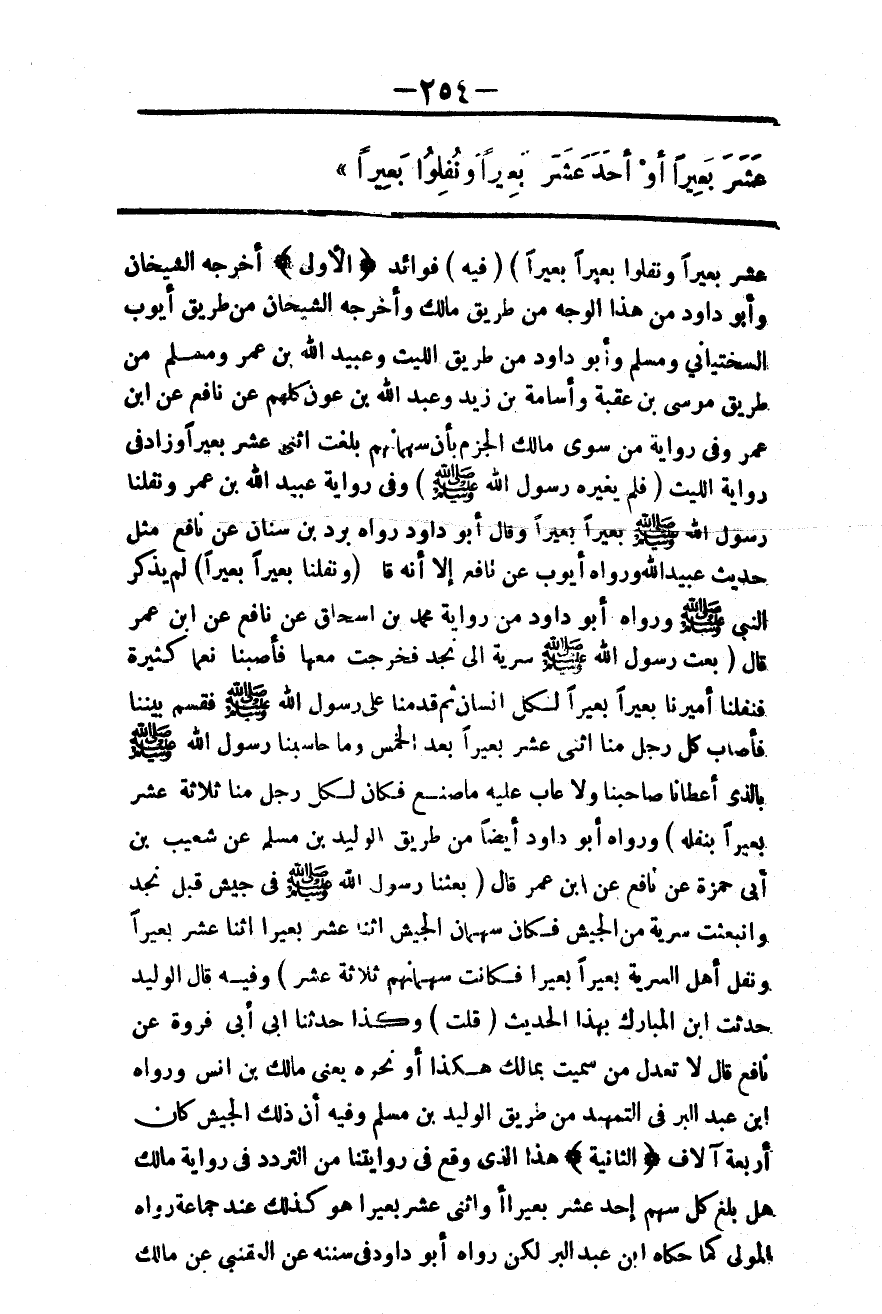 —٢٥٤—
عَشَرَ بَعِيراً أَوْ أَحَدَ عَشَرَ بَعِيراً وَنُفِلُوا بَعِيراً »
عشر بعيراً ونفلوا بعيراً بعيراً ) ( فيه ) فوائد ﴿ الأولى ﴾ أخرجه الشيخان
وأبو داود من هذا الوجه من طريق مالك وأخرجه الشيخان من طريق أيوب
السختياني ومسلم وأبو داود من طريق الليث وعبيد الله بن عمر ومسلم من
طريق موسى بن عقبة وأسامة بن زيد وعبد الله بن عون كلهم عن نافع عن ابن
عمر وفى رواية من سوى مالك الجزم بأن سهمانهم بلغت اثنى عشر بعيراً وزاد فى
رواية الليث ( فلم يغيره رسول الله ﷺ ) وفى رواية عبيد الله بن عمر ونفلنا
رسول الله ﷺ بعيراً بعيراً وقال أبو داود رواه برد بن سنان عن نافع مثل
حديث عبيد الله ورواه أيوب عن نافع إلا أنه قا (ونفلنا بعيراً بعيراً) لم يذكر
النبى ﷺ ورواه أبو داود من رواية محمد بن اسحاق عن نافع عن ابن عمر
قال ( بعث رسول الله ﷺ سرية الى نجد فخرجت معها فأصبنا نعما كثيرة
فنفلنا أميرنا بعيراً بعيراً لكل انسان ثم قدمنا على رسول الله ﷺ فقسم بيننا
فأصاب كل رجل منا اثنى عشر بعيراً بعد الخمس وما حاسبنا رسول الله ﷺ
بالذى أعطانا صاحبنا ولا عاب عليه ما صنع فكان لكل رجل منا ثلاثة عشر
بعيراً بنفله ) ورواه أبو داود أيضاً من طريق الوليد بن مسلم عن شعيب بن
أبى حمزة عن نافع عن ابن عمر قال ( بعثنا رسول الله ﷺ فى جيش قبل نجد
وانبعثت سرية من الجيش فكان سهمان الجيش اثنا عشر بعيرا اثنا عشر بعيراً
ونفل أهل السرية بعيراً بعيرا فكانت سهمانهم ثلاثة عشر ) وفيه قال الوليد
حدثت ابن المبارك بهذا الحديث ( قلت ) وكذا حدثنا ابى أبى فروة عن
نافع قال لا تعدل من سميت بمالك هكذا أو نحوه يعنى مالك بن انس ورواه
ابن عبد البر فى التمهيد من طريق الوليد بن مسلم وفيه أن ذلك الجيش كان
أربعة آلاف ﴿ الثانية ﴾ هذا الذى وقع فى روايتنا من التردد فى رواية مالك
هل بلغ كل سهم إحد عشر بعيرا أ واثنى عشر بعيرا هو كذلك عند جماعة رواه
المولى كما حكاه ابن عبد البر لكن رواه أبو داود فى سننه عن القعنبي عن مالك